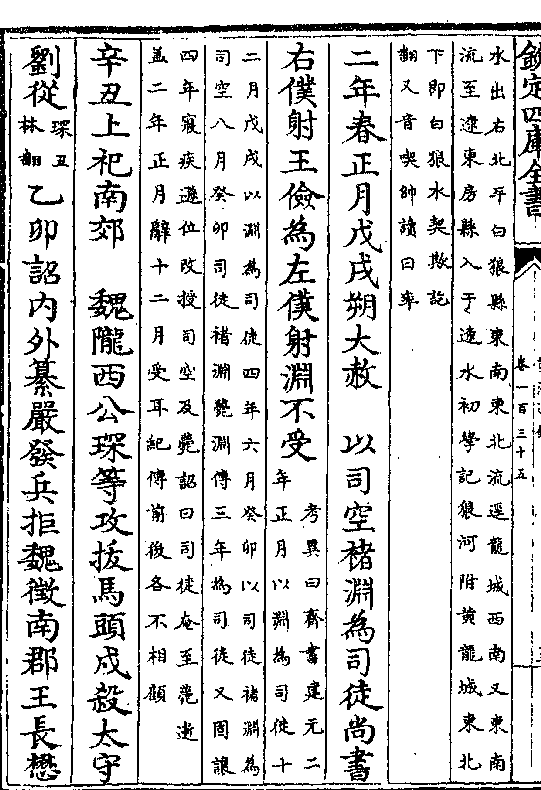 欽定四庫全書
卷一百三十五
水出右北平白狼縣東南東北流逕龍城西南又東南
流至遼東房縣入于遼水初學記狼河附黃龍城東北
下即白狼水契欺訖
翻又音喫帥讀曰率
二年春正月戊戌朔大赦　以司空褚淵為司徒尚書
右僕射王儉為左僕射淵不受考異曰齊書建元二
年正月以淵為司徒十
二月戊戌以淵為司徒四年六月癸卯以司徒褚淵為
司空八月癸卯司徒褚淵薨淵傳三年為司徒又固讓
四年寢疾遜位改授司空及薨詔曰司徒奄至薨逝
蓋二年正月辭十二月受耳紀傳前後各不相顧
辛丑上祀南郊　魏隴西公琛等攻拔馬頭戍殺太守
劉從琛丑林翻乙卯詔內外纂嚴發兵拒魏徵南郡王長懋